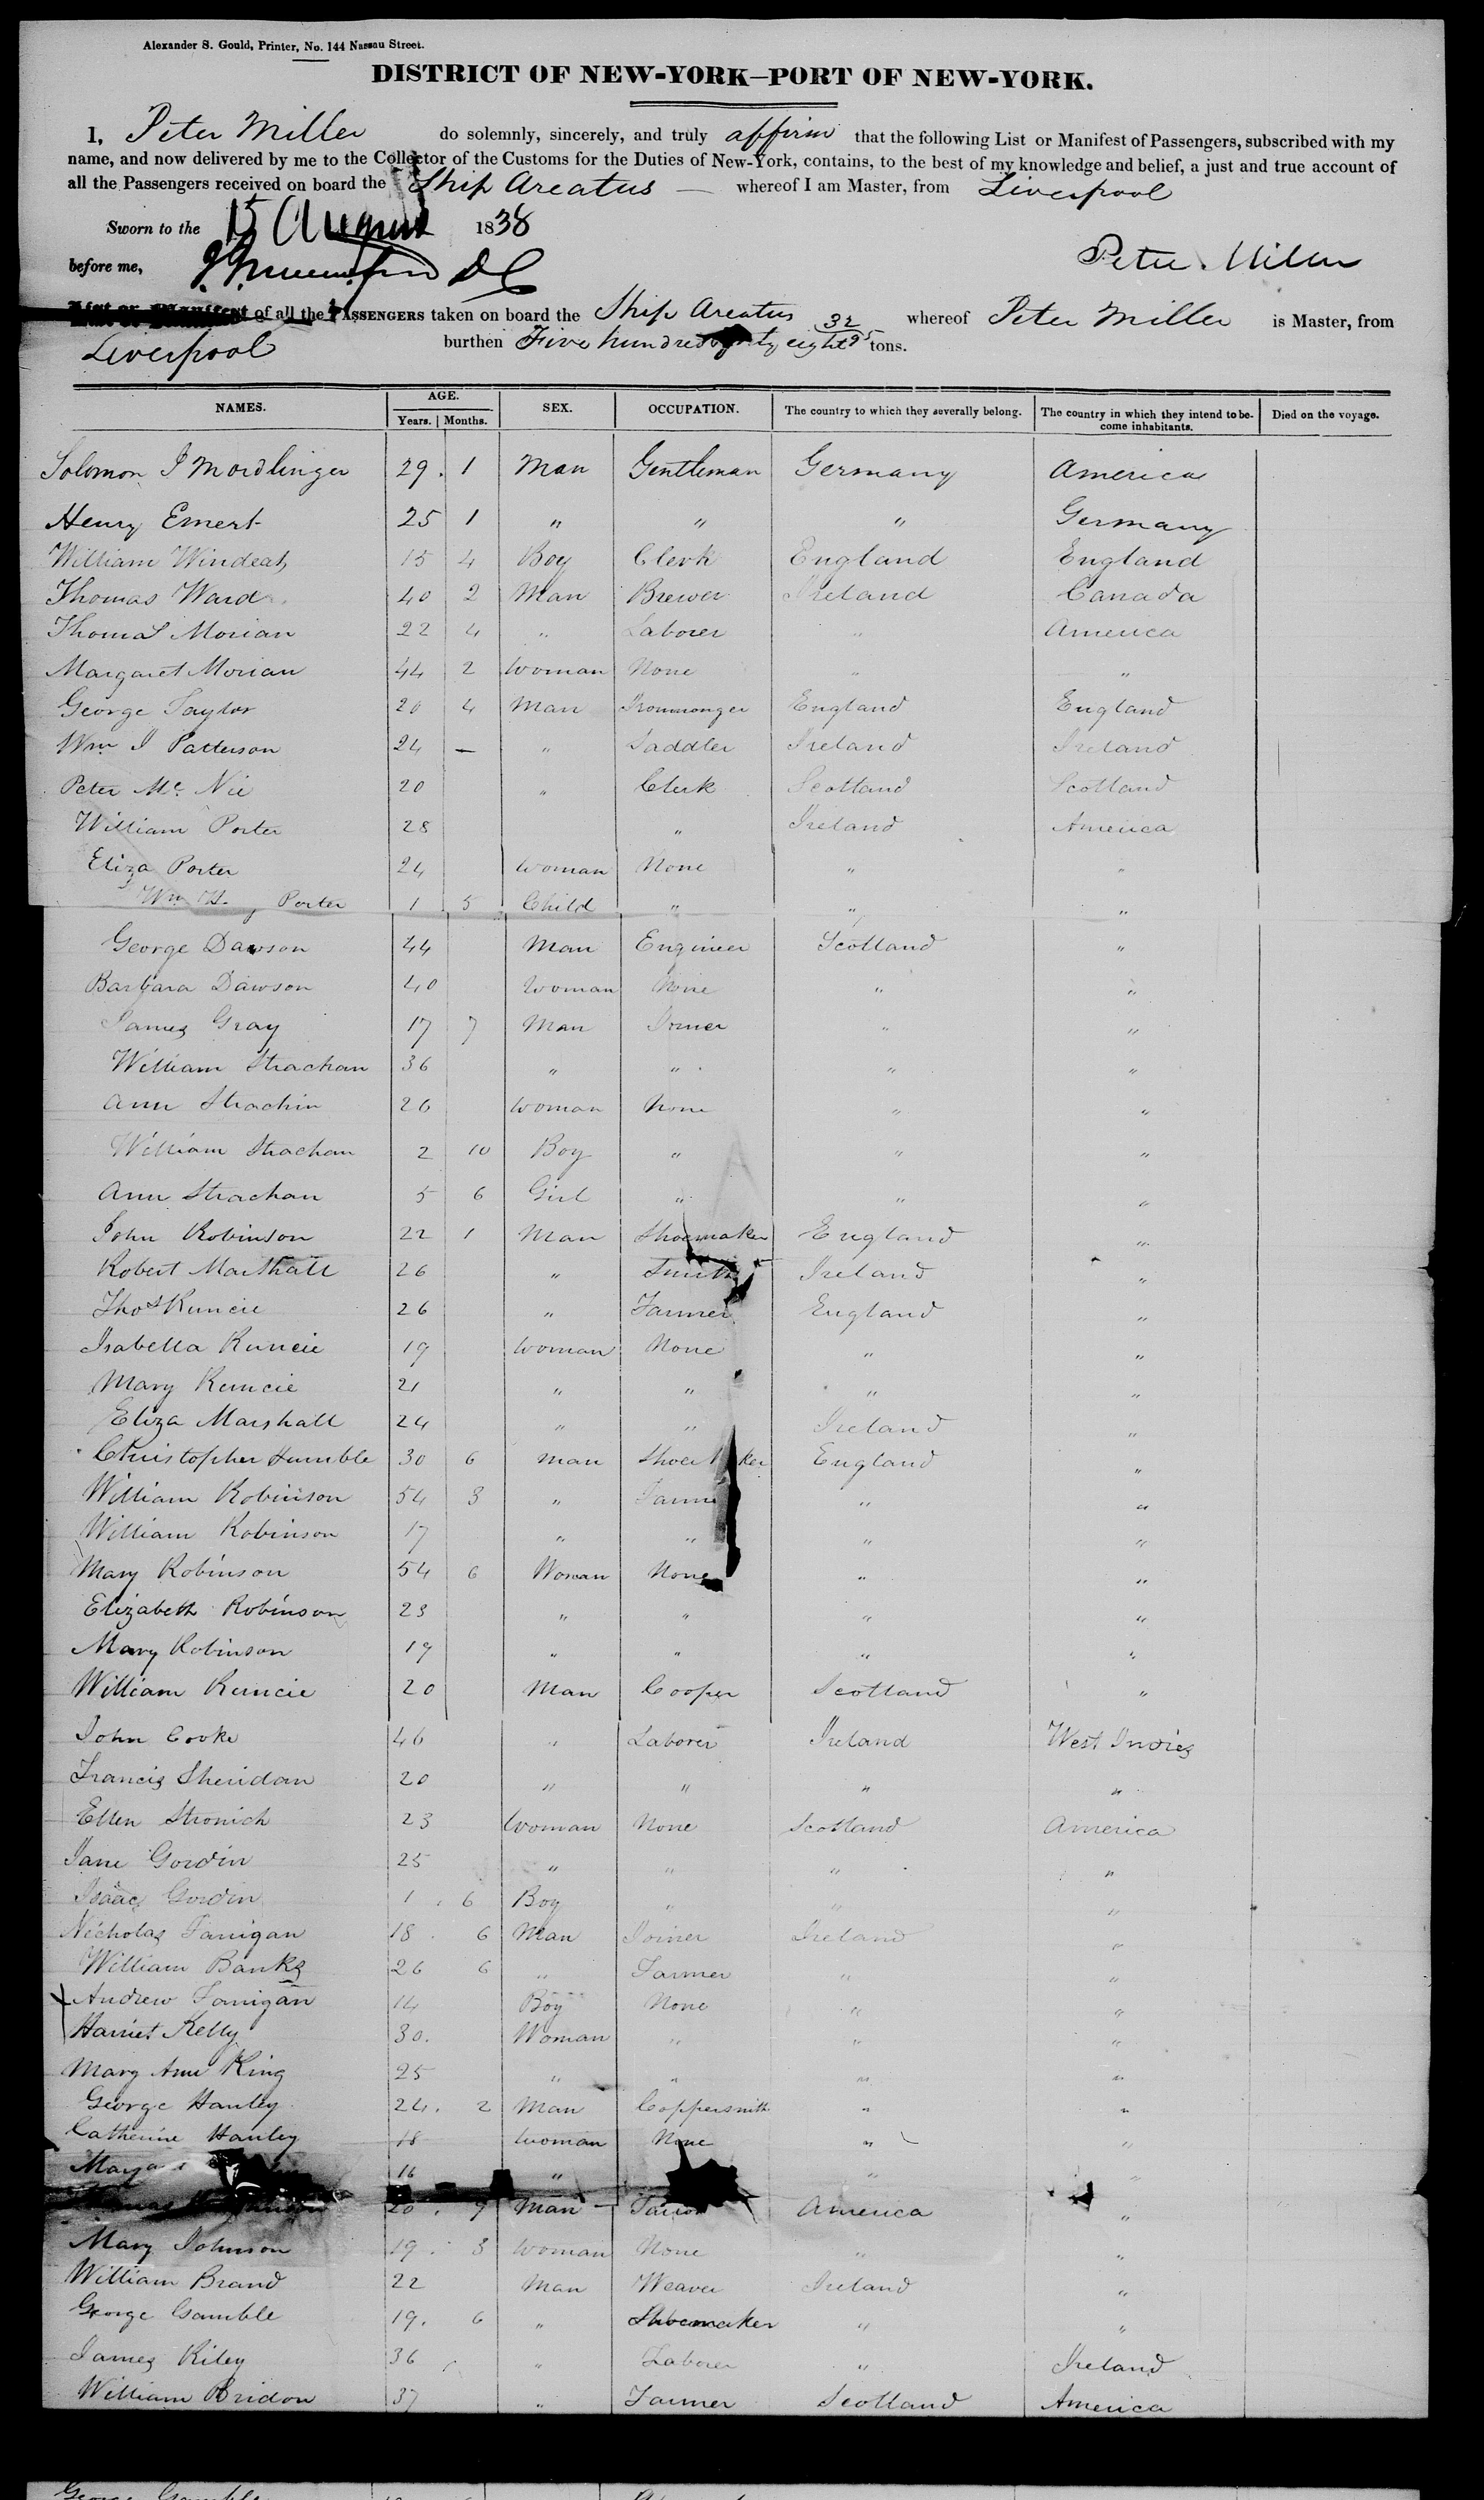 Alexander S. Gould, Printer, No. 144 Nassau Street.
DISTRICT OF NEW-YORK—PORT OF NEW-YORK.
I, Peter Miller do solemnly, sincerely, and truly affirm that the following List or Manifest of Passengers, subscribed with my
name, and now delivered by me to the Collector of the Customs for the Duties of New-York, contains, to the best of my knowledge and belief, a just and true account of
all the Passengers received on board the Ship Areatus — whereof I am Master, from Liverpool
Sworn to the 15 August 1838
before me, Peter Miller
List or Manifest of all the PASSENGERS taken on board the Ship Areatus whereof Peter Miller is Master, from
Liverpool burthen Five hundred eight 32/95 tons.
NAMES. AGE. Years. Months. SEX. OCCUPATION. The country to which they severally belong. The country in which they intend to become inhabitants. Died on the voyage.
Solomon I Mordlinger 29. 1 Man Gentleman Germany America
Henry Emert 25 1 " " " Germany
William Windeat 15 4 Boy Clerk England England
Thomas Ward 40 2 Man Brewer Ireland Canada
Thomas Morian 22 4 " Laborer " America
Margaret Morian 44 2 Woman None " "
George Taylor 20 4 Man Ironmonger England England
Wm I Patterson 24 — " Saddler Ireland Ireland
Peter Mc Nie 20 " Clerk Scotland Scotland
William Porter 28 " Ireland America
Eliza Porter 24 Woman None " "
Wm H. Porter 1 5 Child " " "
George Dawson 44 Man Engineer Scotland "
Barbara Dawson 40 Woman None " "
James Gray 17 7 Man Joiner " "
William Strachan 36 " " " "
Ann Strachin 26 Woman None " "
William Strachan 2 10 Boy " " "
Ann Strachan 5 6 Girl " " "
John Robinson 22 1 Man Shoemaker England "
Robert Marshall 26 " Smith Ireland "
Thos Runcie 26 " Farmer England "
Isabella Runcie 19 Woman None " "
Mary Runcie 21 " " " "
Eliza Marshall 24 " " Ireland "
Christopher Humble 30 6 Man Shoemaker England "
William Robinson 54 3 " Farmer " "
William Robinson 17 " " " "
Mary Robinson 54 6 Woman None " "
Elizabeth Robinson 23 " " " "
Mary Robinson 19 " " " "
William Runcie 20 Man Cooper Scotland "
John Cooke 46 " Laborer Ireland West Indies
Francis Sheridan 20 " " " "
Ellen Stronich 23 Woman None Scotland America
Jane Gordin 25 " " " "
Isaac Gordin 1 6 Boy " " "
Nicholas Fanigan 18 6 Man Joiner Ireland "
William Banks 26 6 " Farmer " "
Andrew Fanigan 14 Boy None " "
Harriet Kelly 30. Woman " " "
Mary Ann King 25 " " " "
George Hanley 24. 2 Man Coppersmith " "
Catherine Hanley 18 Woman None " "
16 " " "
20. 7 Man America "
Mary Johnson 19. 3 Woman None " "
William Brand 22 Man Weaver Ireland "
George Gamble 19. 6 " Shoemaker " "
James Riley 36 " Laborer " Ireland
William Bridon 37 " Farmer Scotland America
George Gamble